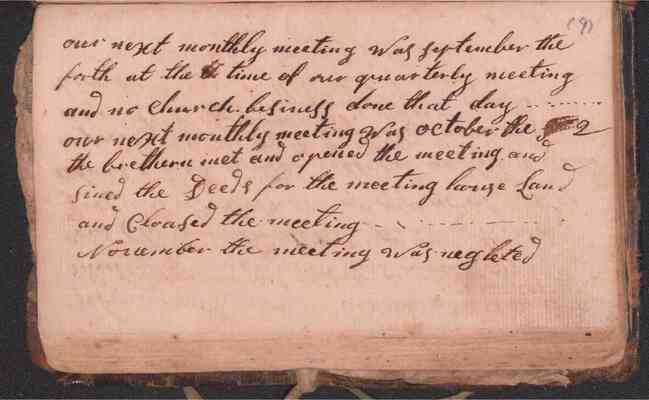 (9)
our next monthly meeting was september the
forth at the time of our quarterly meeting
and no church business done that day
our next monthly meeting was october the 2
the brethern met and opened the meeting and
sined the Deeds for the meeting house Land
and Cloased the meeting
November the meeting was negleted